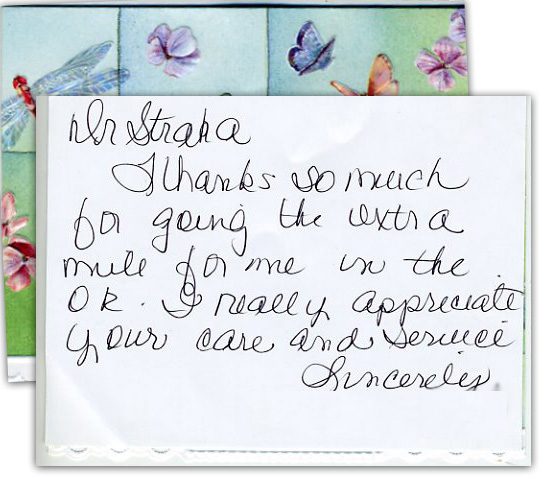 Dr Straka
Thanks so much
for going the extra
mile for me in the
OR. I really appreciate
your care and service
Sincerely